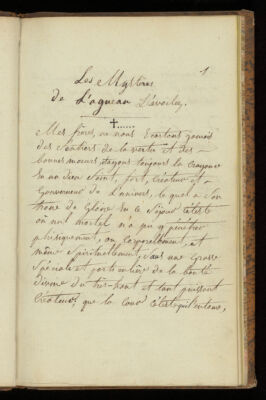 1
Les Mystères
de L'agneau Dévoilez.
Mes frères, ne nous Écartons jamais
des Sentiers de la vertu et des
bonnes mœurs, ayons toujours la croyance
En un Dieu Saint, fort, Créateur et
Gouverneur de L'univers, lequel a Son
trône de Gloire En ce Séjour Céleste
où nul mortel n'a pu y pénétrer
phisiquement, ou Corporellement, et
même Spirituellement, Sans une Grace
Spéciale et particulière de la bonté
divine du très-haut et tout puissant
Créateur, que la Cour Céleste qui l'entoure,